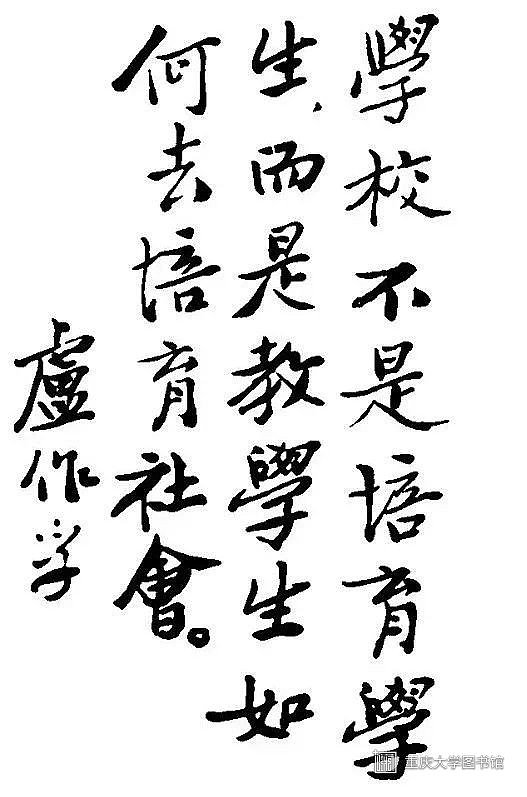 學校不是培育學
生、而是教學生如
何去培育社會。
盧作孚
重庆大学图书馆